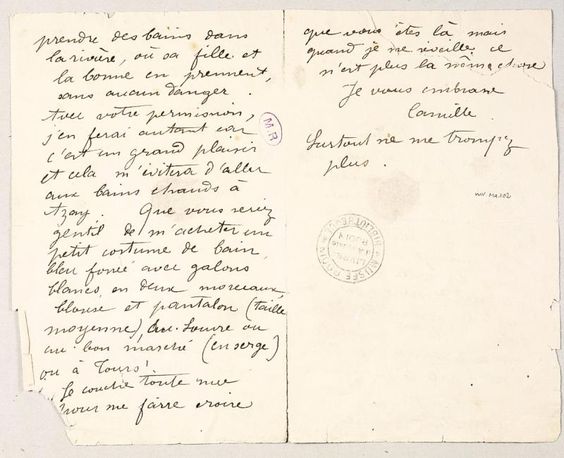 prendre des bains dans
la rivière, où sa fille et
la bonne en prennent,
sans aucun danger.
Avec votre permission,
j'en ferai autant car
c'est un grand plaisir
et cela m'évitera d'aller
aux bains chauds à
Azay. Que vous seriez
gentil de m'acheter un
petit costume de bain,
bleu foncé avec galons
blancs, en deux morceaux,
blouse et pantalon (taille
moyenne), au Louvre ou
au bon marché (en serge)
ou à Tours!
Je couche toute nue
pour me faire croire
que vous êtes là mais
quand je me réveille ce
n'est plus la même chose
Je vous embrasse
Camille
Surtout ne me trompez
plus.
M.R
MUSÉE RODIN